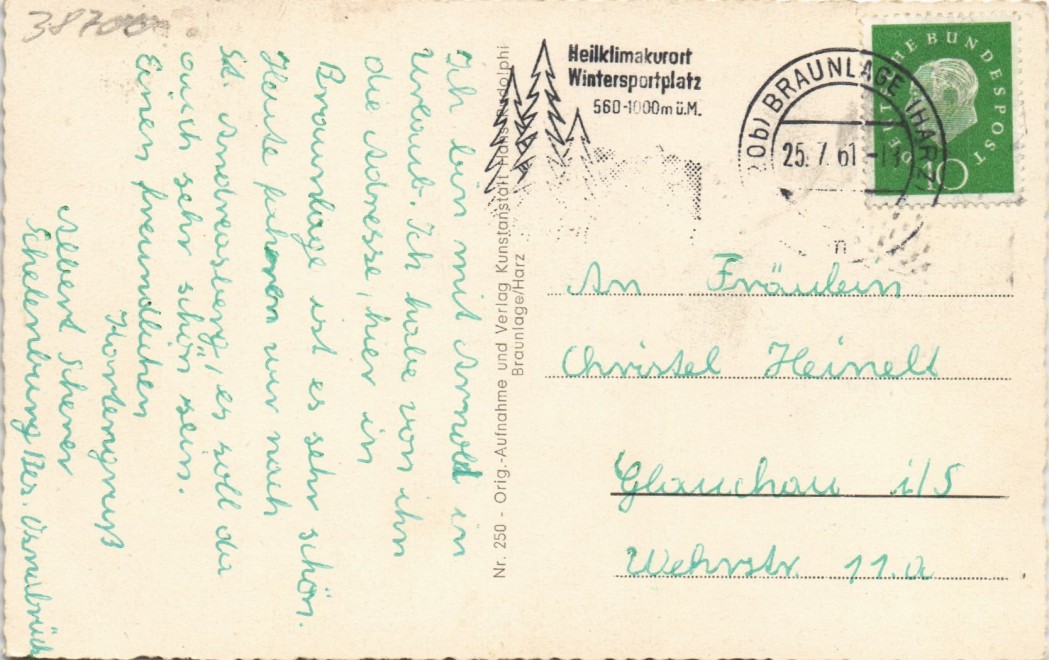 38700
Heilklimakurort
Wintersportplatz
560-1000m ü.M.
(20b) BRAUNLAGE (HARZ)
25. 7. 61
DEUTSCHE BUNDESPOST
10
Ich bin mit Arnold in
Urlaub. Ich habe von ihn
die Adresse, hier in
Braunlage ist es sehr schön.
Heute fahren wir nach
St. Andreasberg, es soll da
auch sehr schön sein.
Einen freundlichen
Kartengruß
Albert Scherer
Schelenburg Bez. Osnabrück
Nr. 250 - Orig.-Aufnahme und Verlag Kunstanstalt Hans Rudolphi
Braunlage/Harz
An Fräulein
Christel Heinelt
Glauchau i/S
Wehrstr. 11.a